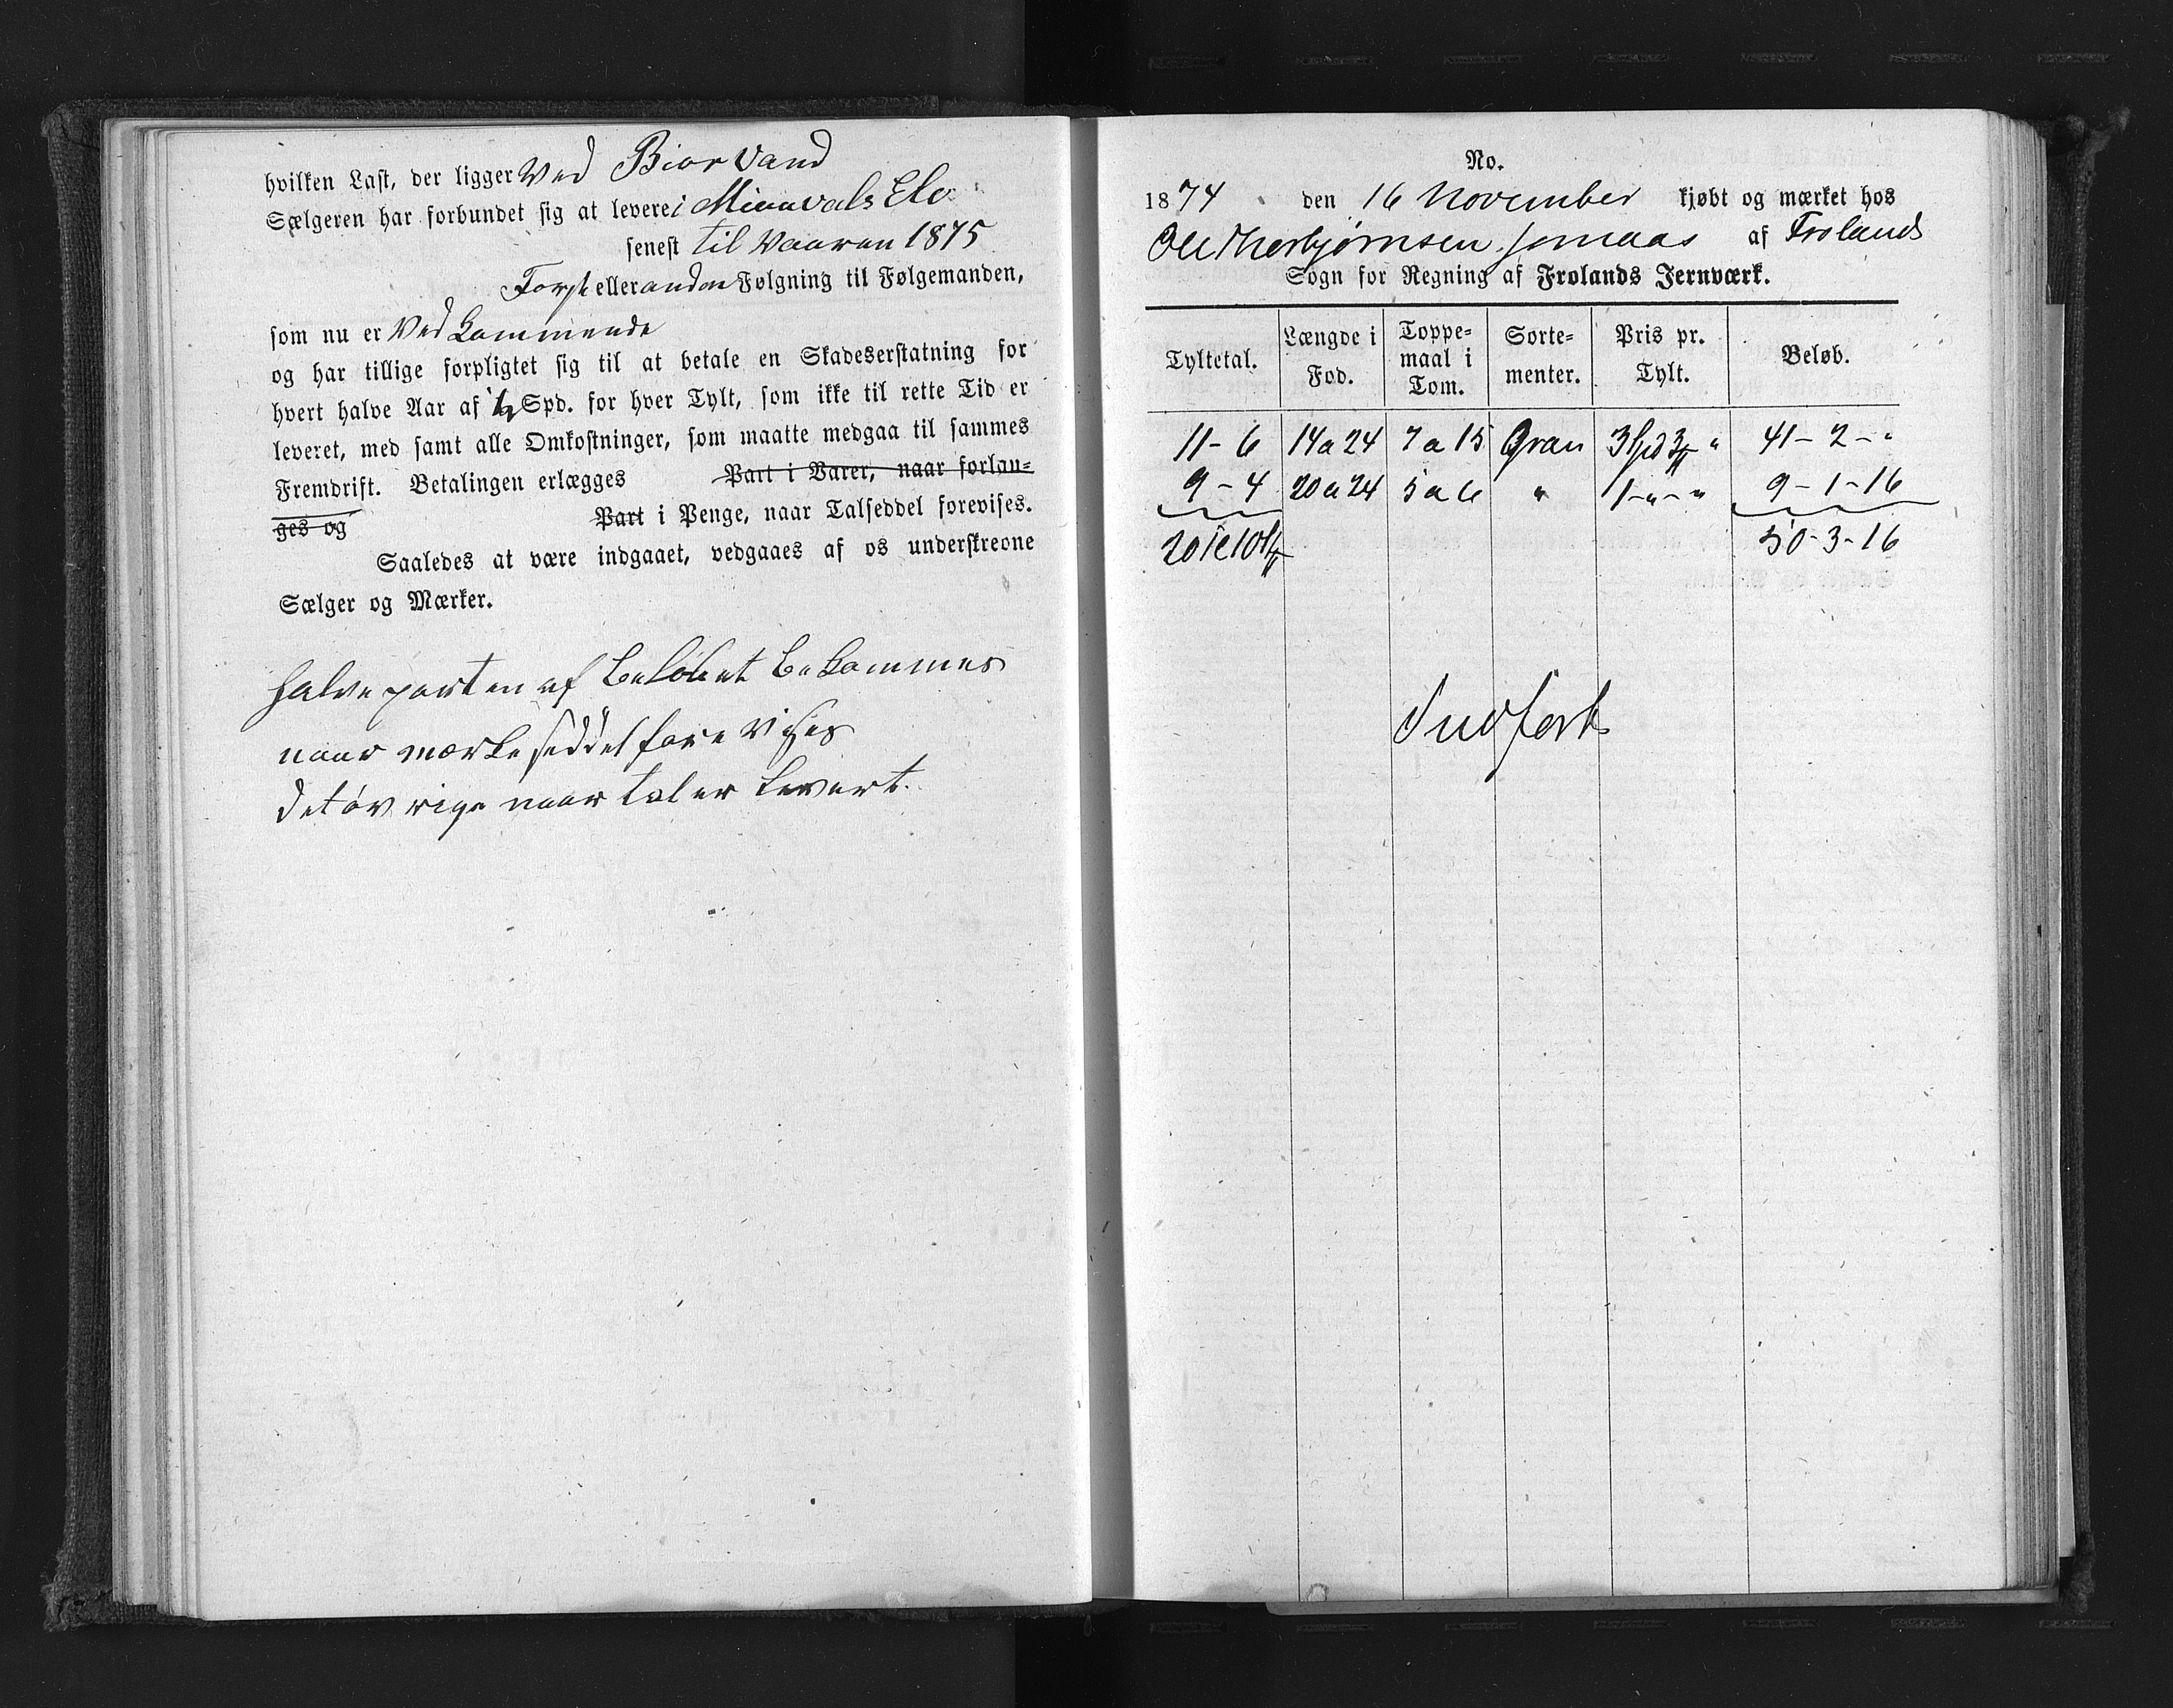 hvilken Last, der ligger Ved Biorvand
Sælgeren har forbundet sig at levere i Mianvals Elv
senest til Vaaren 1875
Forst eller anden Følgning til Følgemanden,
som nu er Vedkommende
og har tillige forpligtet sig til at betale en Skadeserstatning for
hvert halve Aar af ½ Spd. for hver Tylt, som ikke til rette Tid er
leveret, med samt alle Omkostninger, som maatte medgaa til sammes
Fremdrift. Betalingen erlægges Part i Varer, naar forlan=
ges og Part i Penge, naar Talseddel forevises.
Saaledes at være indgaaet, vedgaaes af os underskrevne
Sælger og Mærker.
halve parten af Beløbet bekommes
naar mærkeseddel forevises
det øvrige naar tal er levert.
No.
1874 den 16 November kjøbt og mærket hos
Ole Thorbjørnsen Jomaas af Frolands
Sogn for Regning af Frolands Jernværk.
Tyltetal. Længde i Fod. Toppe=maal i Tom. Sorte=menter. Pris pr. Tylt. Beløb.
11-6 14 a 24 7 a 15 Gran 3 Spd 3 " 41-2-"
9-4 20 a 24 5 a 6 " 1-"-" 9-1-16
50-3-16
Indført